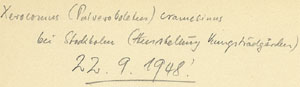 Xerocomus (Pulveroboletus) cramesinus
bei Stockholm (Ausstellung Kungsträdgården)
22.9.1948!